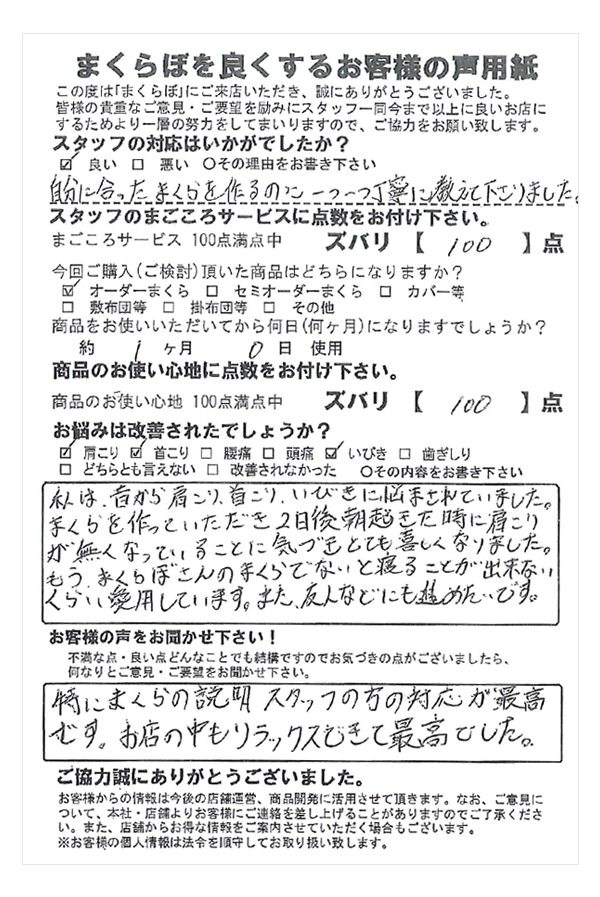 まくらぼを良くするお客様の声用紙
この度は「まくらぼ」にご来店いただき、誠にありがとうございました。
皆様の貴重なご意見・ご要望を励みにスタッフ一同今まで以上に良いお店に
するためより一層の努力をしてまいりますので、ご協力をお願い致します。
スタッフの対応はいかがでしたか？
☑ 良い □ 悪い ○その理由をお書き下さい
自分に合ったまくらを作るのに一つ一つ丁寧に教えて下さりました。
スタッフのまごころサービスに点数をお付け下さい。
まごころサービス 100点満点中 ズバリ【 100 】点
今回ご購入(ご検討)頂いた商品はどちらになりますか？
☑ オーダーまくら □ セミオーダーまくら □ カバー等
□ 敷布団等 □ 掛布団等 □ その他
商品をお使いいただいてから何日(何ヶ月)になりますでしょうか？
約 1 ヶ月 0 日 使用
商品のお使い心地に点数をお付け下さい。
商品のお使い心地 100点満点中 ズバリ【 100 】点
お悩みは改善されたでしょうか？
☑ 肩こり ☑ 首こり □ 腰痛 □ 頭痛 ☑ いびき □ 歯ぎしり
□ どちらとも言えない □ 改善されなかった ○その内容をお書き下さい
私は、昔から肩こり、首こり、いびきに悩まされていました。
まくらを作っていただき2日後朝起きた時に肩こり
が無くなっていることに気づきとても喜しくなりました。
もう、まくらぼさんのまくらでないと寝ることが出来ない
くらい愛用しています。また、友人などにも進めたいです。
お客様の声をお聞かせ下さい！
不満な点・良い点どんなことでも結構ですのでお気づきの点がございましたら、
何なりとご意見・ご要望をお聞かせ下さい。
特にまくらの説明 スタッフの方の対応が最高
です。お店の中もリラックスできて最高でした。
ご協力誠にありがとうございました。
お客様からの情報は今後の店舗運営、商品開発に活用させて頂きます。なお、ご意見に
ついて、本社・店舗よりお客様にご連絡を差し上げることがありますのでご了承くださ
い。また、店舗からお得な情報をご案内させていただく場合もございます。
※お客様の個人情報は法令を順守してお取り扱い致します。